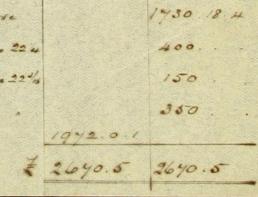 1730.18.4
22 6 400
22 5/6 150
350
1972.0.1
£ 2670.5 2670.5